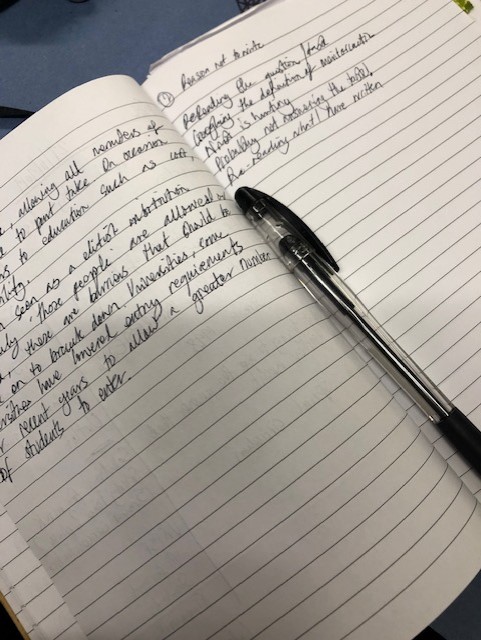 , allowing all members of
to part take. An occasion
to education such as cost,
seen as a elitist institution
those people are allowed
these are barriers that should be
on to break down. Universities, some
have lowered entry requirements
recent years to allow a greater number
of students to enter.
① Reason not to write
Repeating the question / text
Copying the definition of
is hunting
Probably not answering the
Re-reading what I have written